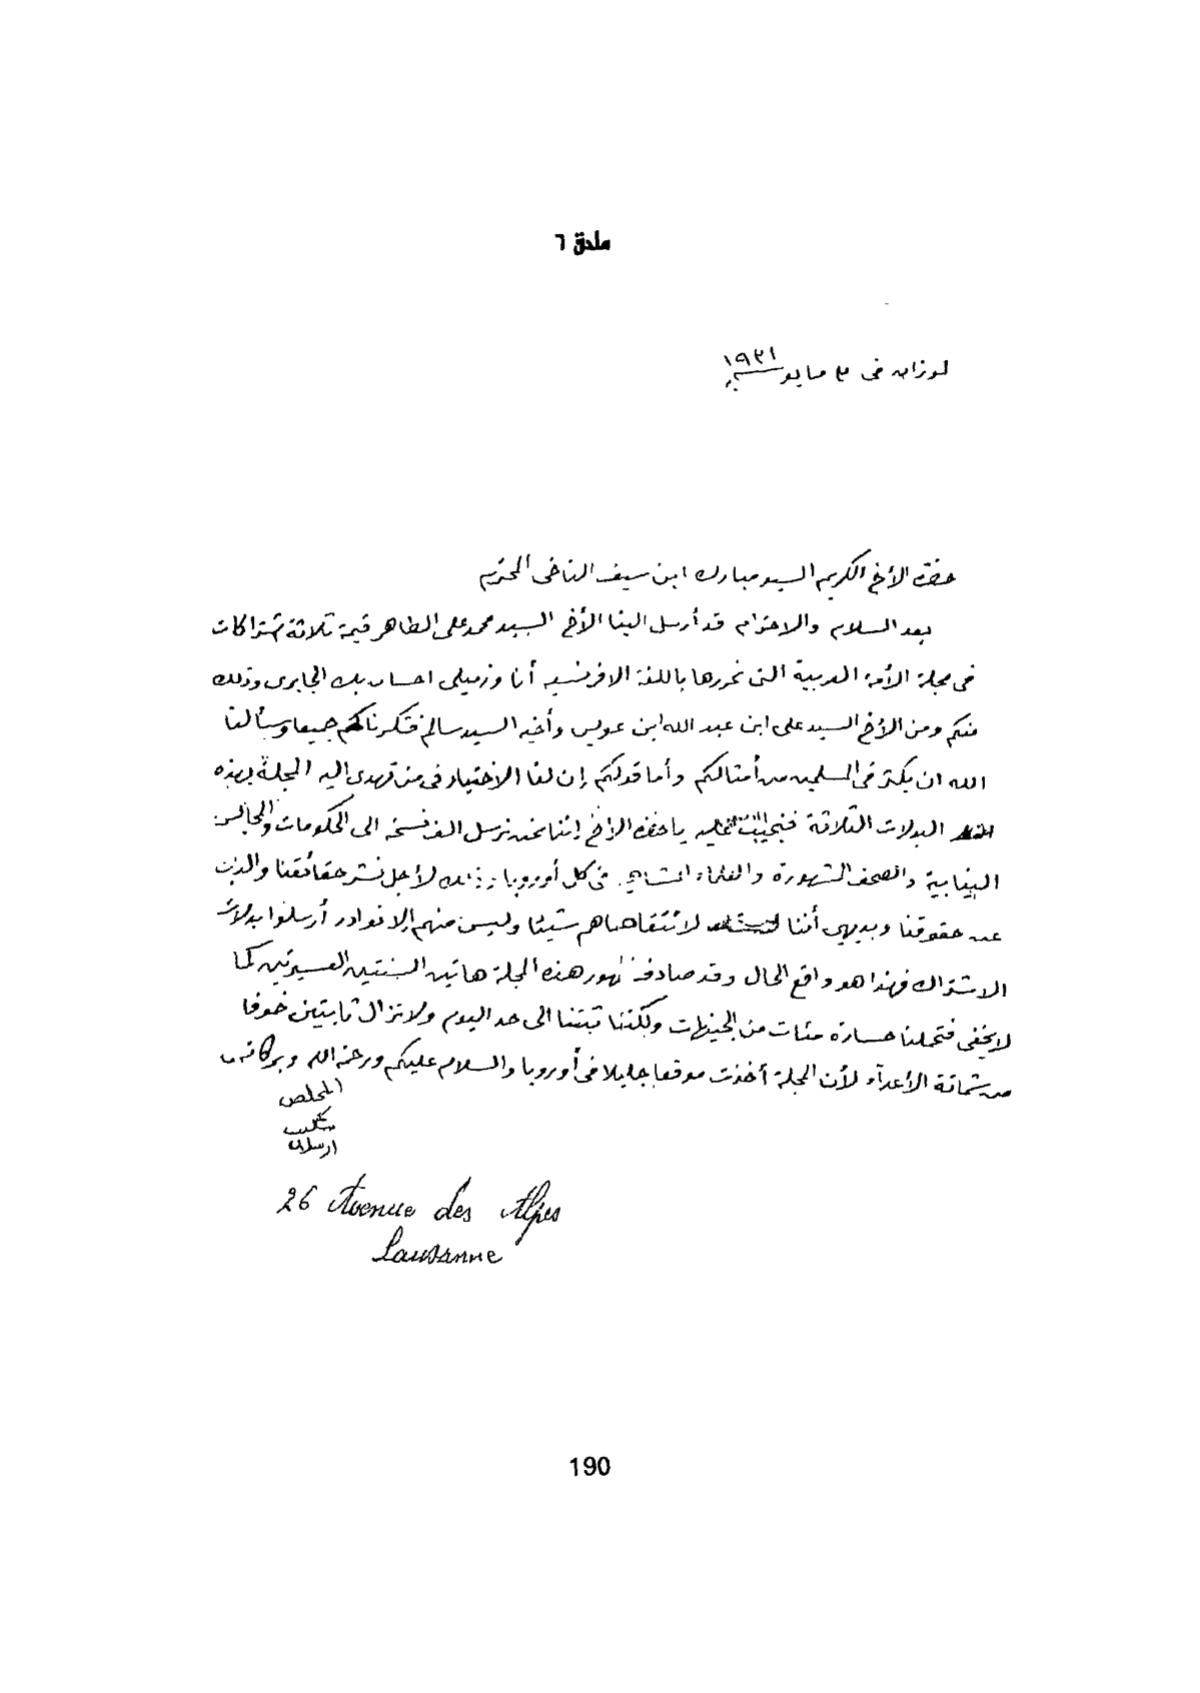 ملحق ٦
لوزان فى ٣ مايو سنة ١٩٣١
حضرة الأخ الكريم السيد مبارك ابن سيف الناخى المحترم
بعد السلام والاحترام قد أرسل الينا الأخ السيد محمد على الطاهر قيمة ثلاثة اشتراكات
فى مجلة الأمة العربية التى نحررها باللغة الافرنسية أنا وزميلى احسان بك الجابرى وذلك
منكم ومن الأخ السيد على ابن عبد الله ابن عويس وأخيه السيد سالم فشكرناكم جميعا وسألنا
الله ان يكثر فى المسلمين من أمثالكم وأما قولكم إن لنا الاختيار فى من تهدى اليه المجلة بهذه
البدلات الثلاثة فنجيب يا حضرة الأخ إننا نحن نرسل الف نسخة الى الحكومات والمجالس
النيابية والصحف الشهورة والعلماء المشاهير فى كل أوروبا وذلك لأجل نشر حقائقنا والذب
عن حقوقنا وبديهى أننا لا نتقاضاهم شيئا وليس منهم إلا نوادر أرسلوا بدلات
الاشتراك فهذا هو واقع الحال وقد صادف ظهور هذه المجلة هاتين السنتين العسيرتين كما
لا يخفى فتحملنا خسارة مئات من الجنيهات ولكننا ثبتنا الى حد اليوم ولا نزال ثابتين خوفا
من شماتة الأعداء لأن المجلة أخذت موقعا جليلا فى أوروبا والسلام عليكم ورحمة الله وبركاته
المخلص
شكيب
ارسلان
26 Avenue des Alpes
Lausanne
190